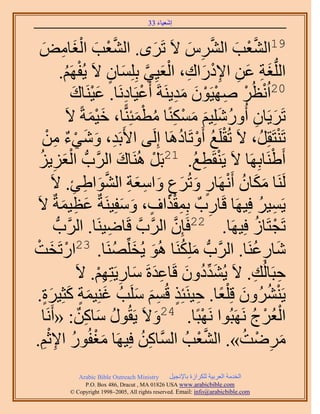 إشعياء 33
19الشَّعْبَ الشَّرِسَ لاَ تَرَى. الشَّعْبَ الْغَامِضَ
اللُّغَةِ عَنِ الإِدْرَاكِ، الْعَيِيَّ بِلِسَانٍ لاَ يُفْهَمُ.
20اُنْظُرْ صِهْيَوْنَ مَدِينَةَ أَعْيَادِنَا. عَيْنَاكَ
تَرَيَانِ أُورُشَلِيمَ مَسْكَنًا مُطْمَئِنًّا، خَيْمَةً لاَ
تَنْتَقِلُ، لاَ تُقْلَعُ أَوْتَادُهَا إِلَى الأَبَدِ، وَشَيْءٌ مِنْ
أَطْنَابِهَا لاَ يَنْقَطِعُ. 21بَلْ هُنَاكَ الرَّبُّ الْعَزِيزُ
لَنَا مَكَانُ أَنْهَارٍ وَتُرَعٍ وَاسِعَةِ الشَّوَاطِئِ. لاَ
يَسِيرُ فِيهَا قَارِبٌ بِمِقْذَافٍ، وَسَفِينَةٌ عَظِيمَةٌ لاَ
تَجْتَازُ فِيهَا. 22فَإِنَّ الرَّبَّ قَاضِينَا. الرَّبُّ
شَارِعُنَا. الرَّبُّ مَلِكُنَا هُوَ يُخَلِّصُنَا. 23ارْتَخَتْ
حِبَالُكِ. لاَ يُشَدِّدُونَ قَاعِدَةَ سَارِيَتِهِمْ. لاَ
يَنْشُرُونَ قِلْعًا. حِينَئِذٍ قُسِمَ سَلَبُ غَنِيمَةٍ كَثِيرَةٍ.
الْعُرْجُ نَهَبُوا نَهْبًا. 24وَلاَ يَقُولُ سَاكِنٌ: «أَنَا
مَرِضْتُ». الشَّعْبُ السَّاكِنُ فِيهَا مَغْفُورُ الإِثْمِ.
Arabic Bible Outreach Ministry الخدمة العربية للكرازة بالإنجيل
P.O. Box 486, Dracut , MA 01826 USA www.arabicbible.com
© Copyright 1998-2005, All rights reserved. Email: info@arabicbible.com